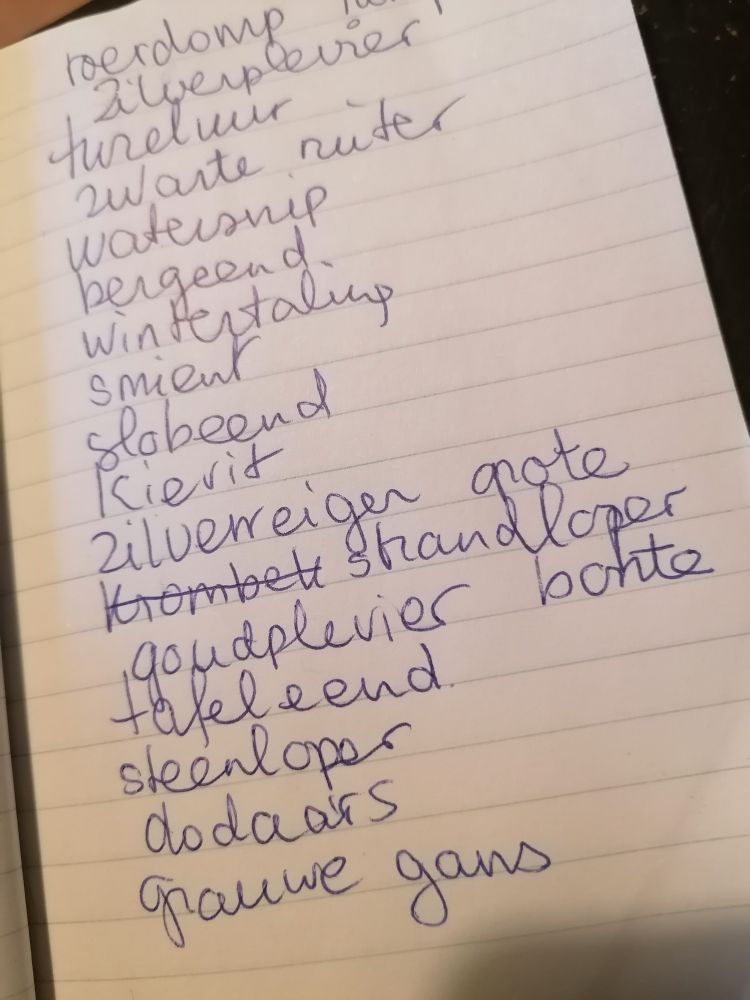 roerdomp
zilverplevier
tureluur
zwarte ruiter
watersnip
bergeend.
wintertaling
smient
slobeend
Kievit
zilverreiger grote
krombek strandloper
goudplevier bonte
tafeleend.
steenloper
dodaars
grauwe gans